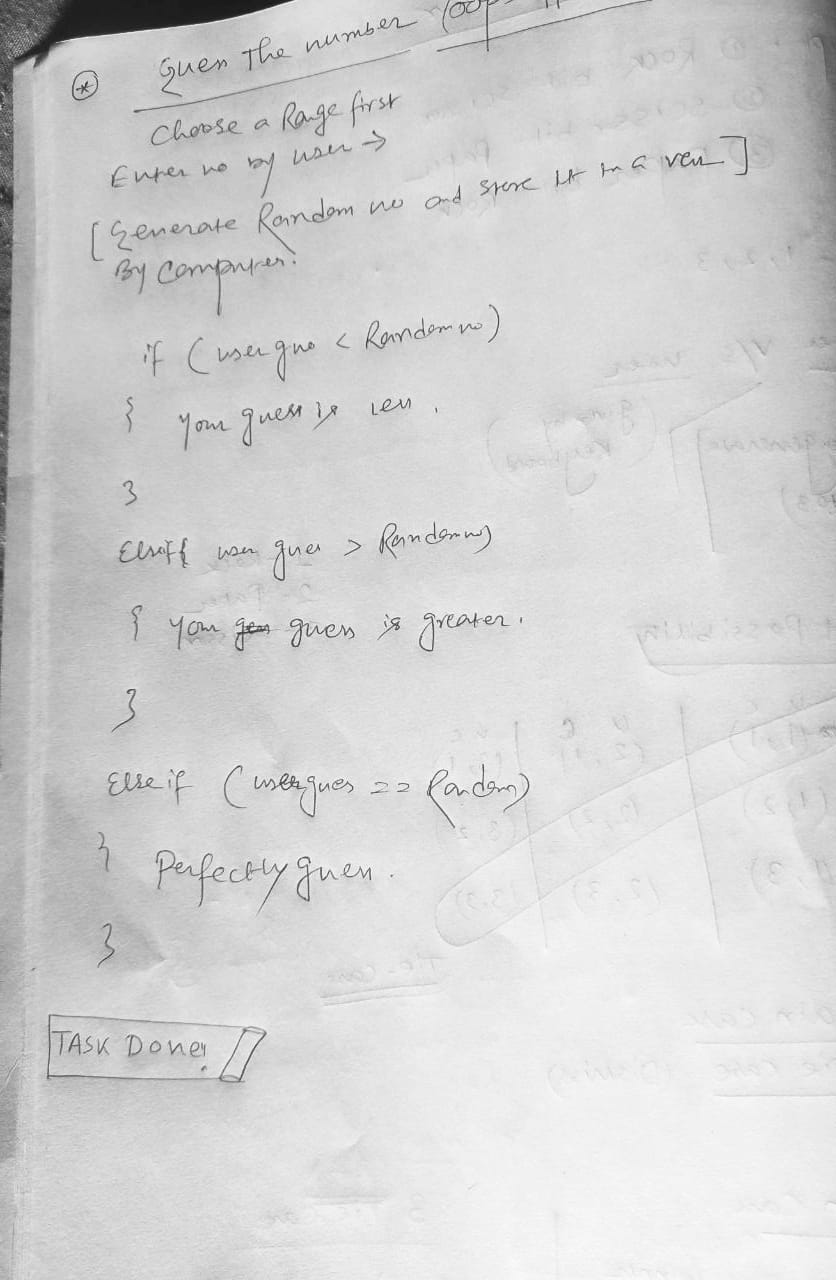 * Guess The number (oop
Choose a Range first
Enter no by user →
[Generate Random no and store it in a var]
By Computer:
if (user gno < Random no)
{ your guess is less.
}
Elseif{ user gues > Random no)
{ your guess is greater.
}
Else if (usergues == Random)
} Perfectly guess.
}
TASK Done!